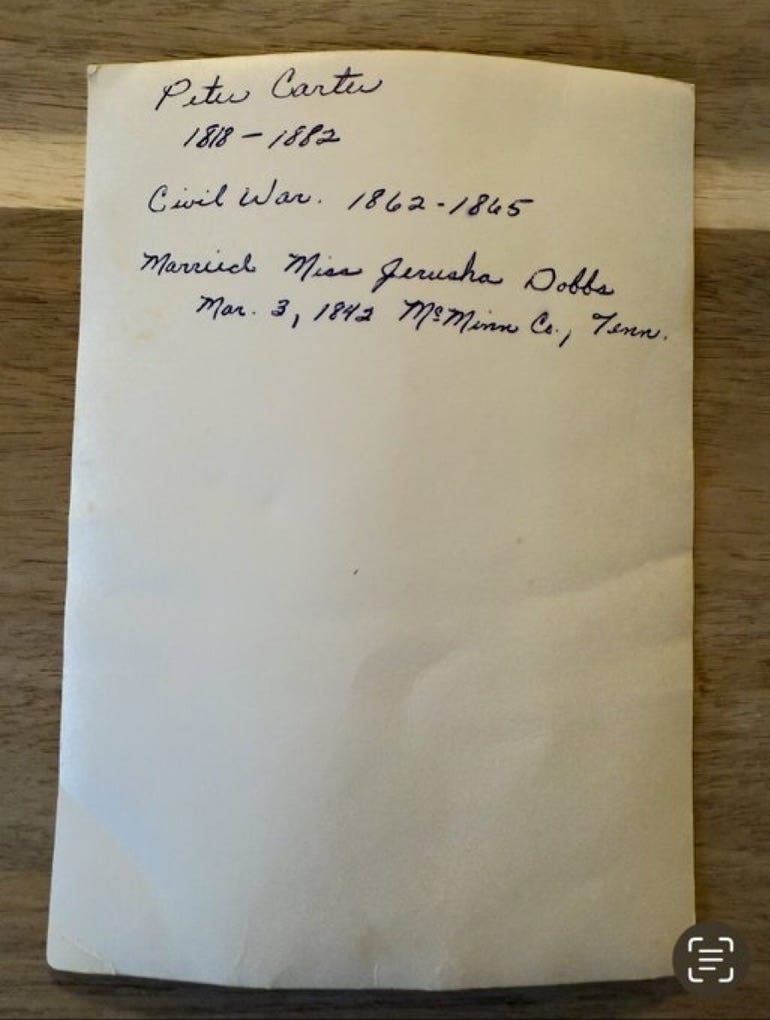 Peter Carter
1818 - 1882
Civil War. 1862-1865
Married Miss Jerusha Dobbs
Mar. 3, 1842 McMinn Co., Tenn.